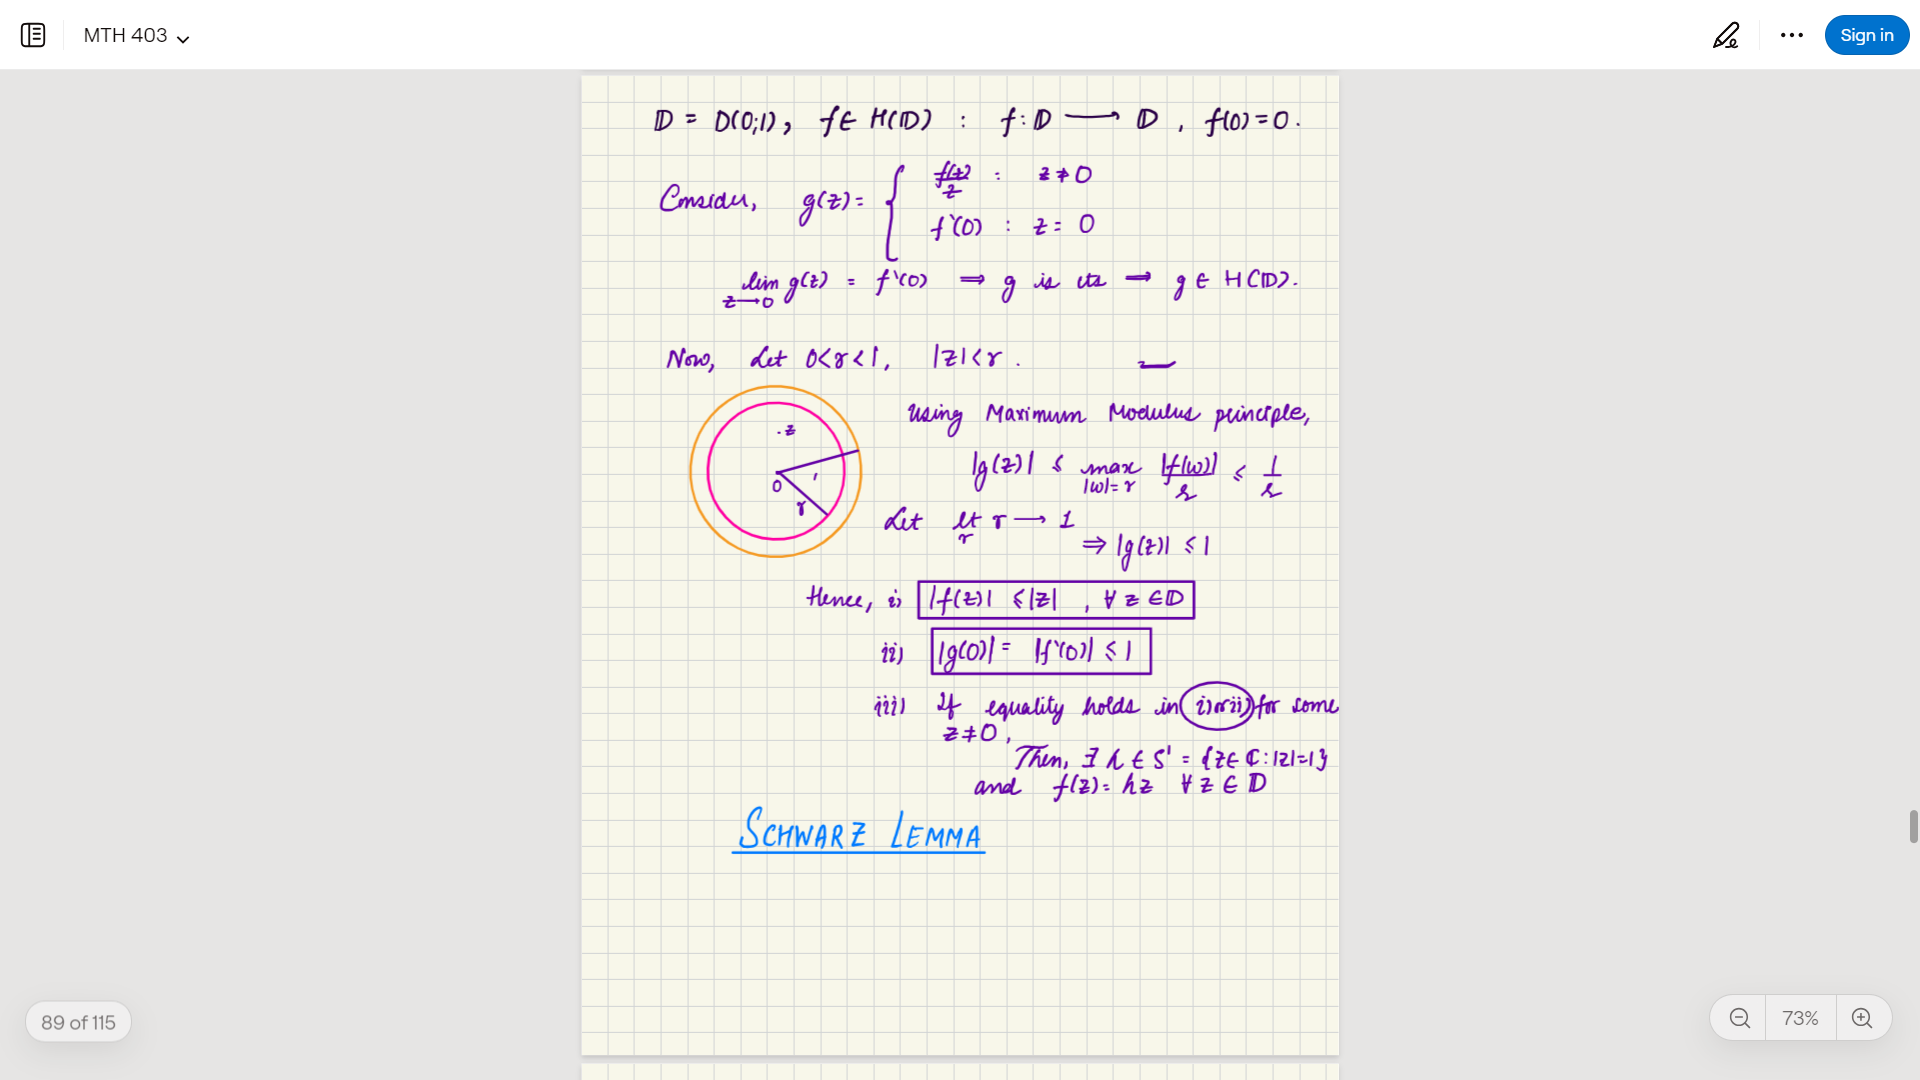 MTH 403
Sign in
𝔻 = D(0;1), f ∈ H(𝔻) : f : 𝔻 ⟶ 𝔻 , f(0) = 0 .
Consider, g(z) = { f(z)/z : z ≠ 0
f'(0) : z = 0
lim z→0 g(z) = f'(0) ⟹ g is cts ⟹ g ∈ H(𝔻).
Now, Let 0<r<1, |z|<r .
. z
0
1
r
Using Maximum Modulus principle,
|g(z)| ≤ max |w|=r |f(w)|/r ≤ 1/r
Let lt r r → 1
⇒ |g(z)| ≤ 1
Hence, i) |f(z)| ≤ |z| , ∀ z ∈ 𝔻
ii) |g(0)| = |f'(0)| ≤ 1
iii) If equality holds in i) or ii) for some
z ≠ 0 ,
Then, ∃ λ ∈ S' = {z ∈ ℂ : |z|=1}
and f(z) = λz ∀ z ∈ 𝔻
SCHWARZ LEMMA
89 of 115
73%